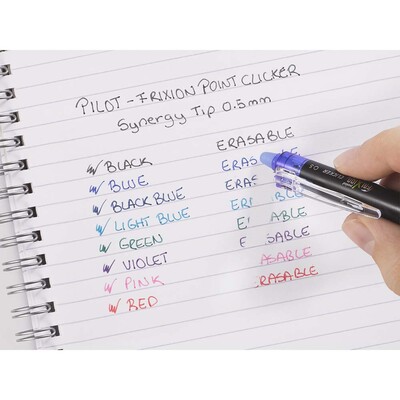 PILOT - FRIXION POINT CLICKER
Synergy Tip 0.5mm
ERASABLE
BLACK
BLUE ERAS
BLACK BLUE ERAS
LIGHT BLUE ER BLE
GREEN E ABLE
VIOLET E SABLE
PINK ASABLE
RED RASABLE